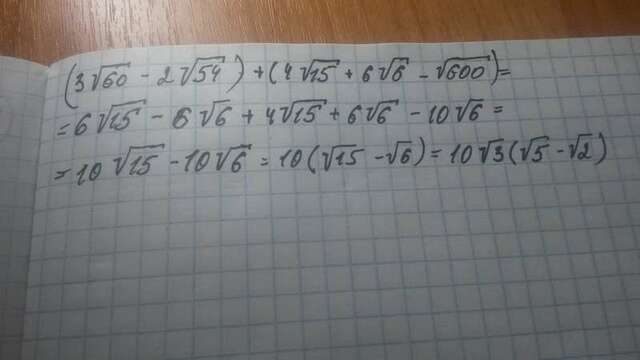 (3√60 - 2√54) + (4√15 + 6√6 - √600) =
= 6√15 - 6√6 + 4√15 + 6√6 - 10√6 =
= 10√15 - 10√6 = 10(√15 - √6) = 10√3(√5 - √2)